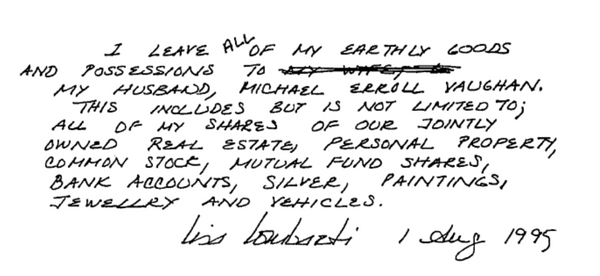 I LEAVE ALL OF MY EARTHLY GOODS
AND POSSESSIONS TO
MY HUSBAND, MICHAEL ERROLL VAUGHAN.
THIS INCLUDES BUT IS NOT LIMITED TO;
ALL OF MY SHARES OF OUR JOINTLY
OWNED REAL ESTATE, PERSONAL PROPERTY,
COMMON STOCK, MUTUAL FUND SHARES,
BANK ACCOUNTS, SILVER, PAINTINGS,
JEWELLRY AND VEHICLES.
1 Aug 1995